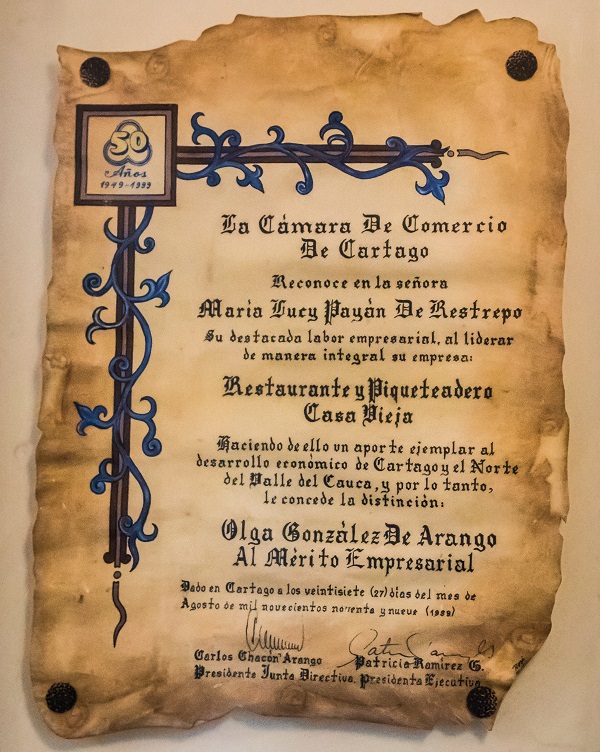 50
Años
1949-1999
La Cámara De Comercio
De Cartago
Reconoce en la señora
María Lucy Payán De Restrepo
Su destacada labor empresarial, al liderar
de manera integral su empresa:
Restaurante y Piqueteadero
Casa Vieja
Haciendo de ello un aporte ejemplar al
desarrollo económico de Cartago y el Norte
del Valle del Cauca, y por lo tanto,
le concede la distinción:
Olga González De Arango
Al Mérito Empresarial
Dado en Cartago a los veintisiete (27) días del mes de
Agosto de mil novecientos noventa y nueve (1999)
Carlos Chacón Arango Patricia Ramírez G.
Presidente Junta Directiva. Presidenta Ejecutiva